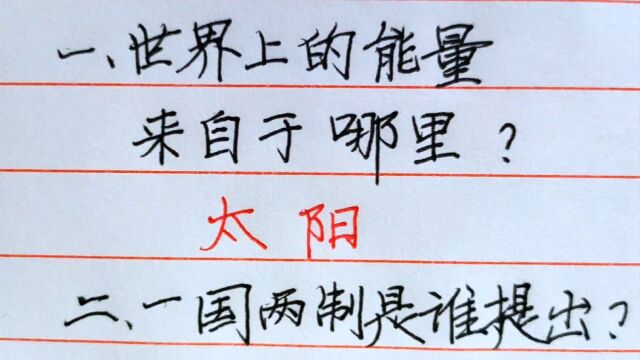 一、世界上的能量
来自于哪里？
太阳
二、一国两制是谁提出？